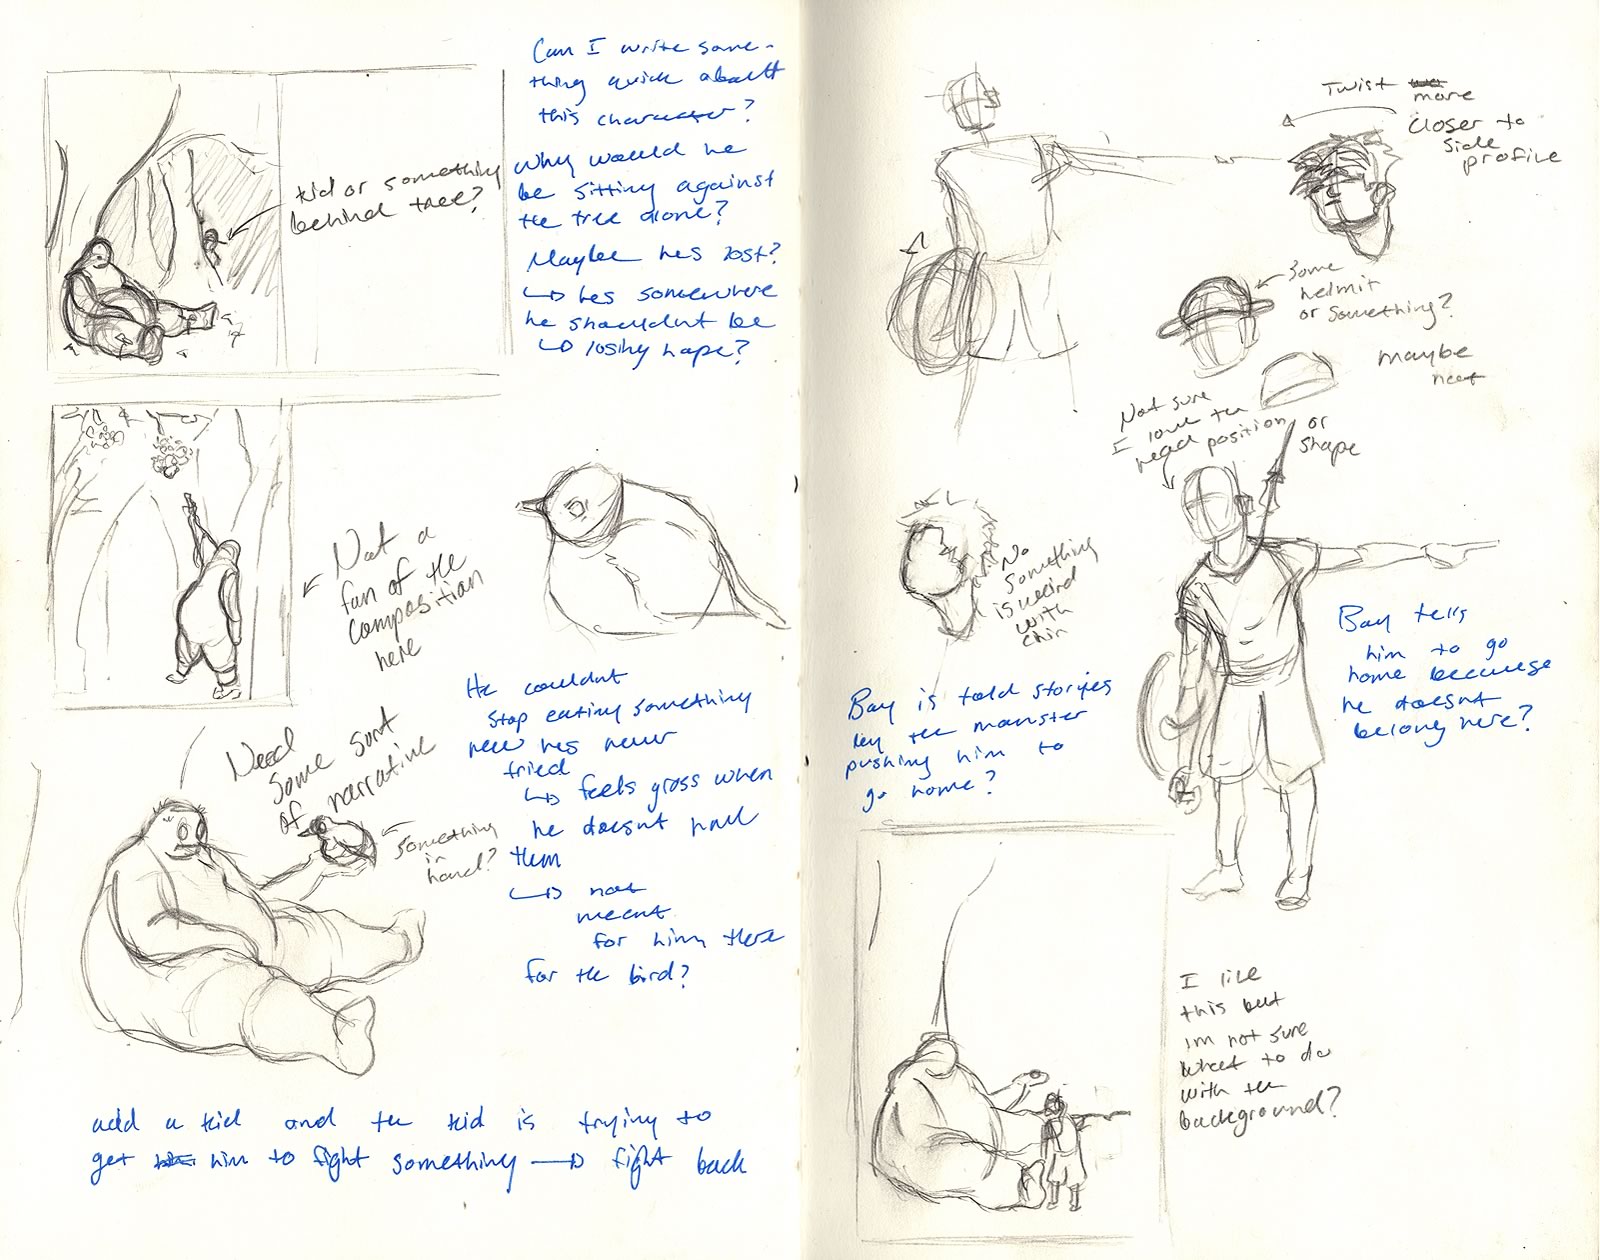 Can I write some-
thing quick about
this character?
Why would he
be sitting against
the tree alone?
Maybe hes lost?
↳ hes somewhere
he shouldnt be
↳ losing hope?
kid or something
behind tree?
Not a
fan of the
composition
here
Need
some sort
of narrative
something
in
hand?
He couldnt
stop eating something
new hes never
tried
↳ feels gross when
he doesnt have
them
↳ not
meant
for him there
for the bird?
add a kid and the kid is trying to
get him to fight something → fight back
Twist more
closer to
side
profile
Some
helmit
or something?
maybe
not
Not sure
I love the
head position or
shape
No
something
is weird
with
chin
Boy is told stories
by the monster
pushing him to
go home?
Boy tells
him to go
home because
he doesnt
belong here?
I like
this but
im not sure
what to do
with the
background?